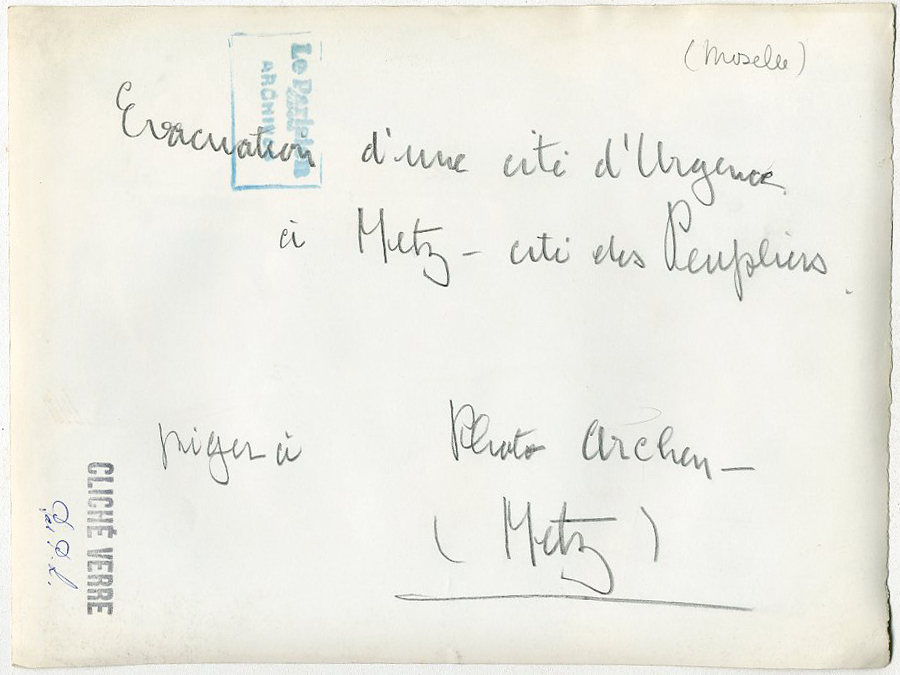 (Moselle)
Le Parisien
ARCHIVES
Evacuation d'une cité d'Urgence
à Metz - cité des Peupliers.
piges à Photo Archen -
(Metz)
CLICHÉ VERRE